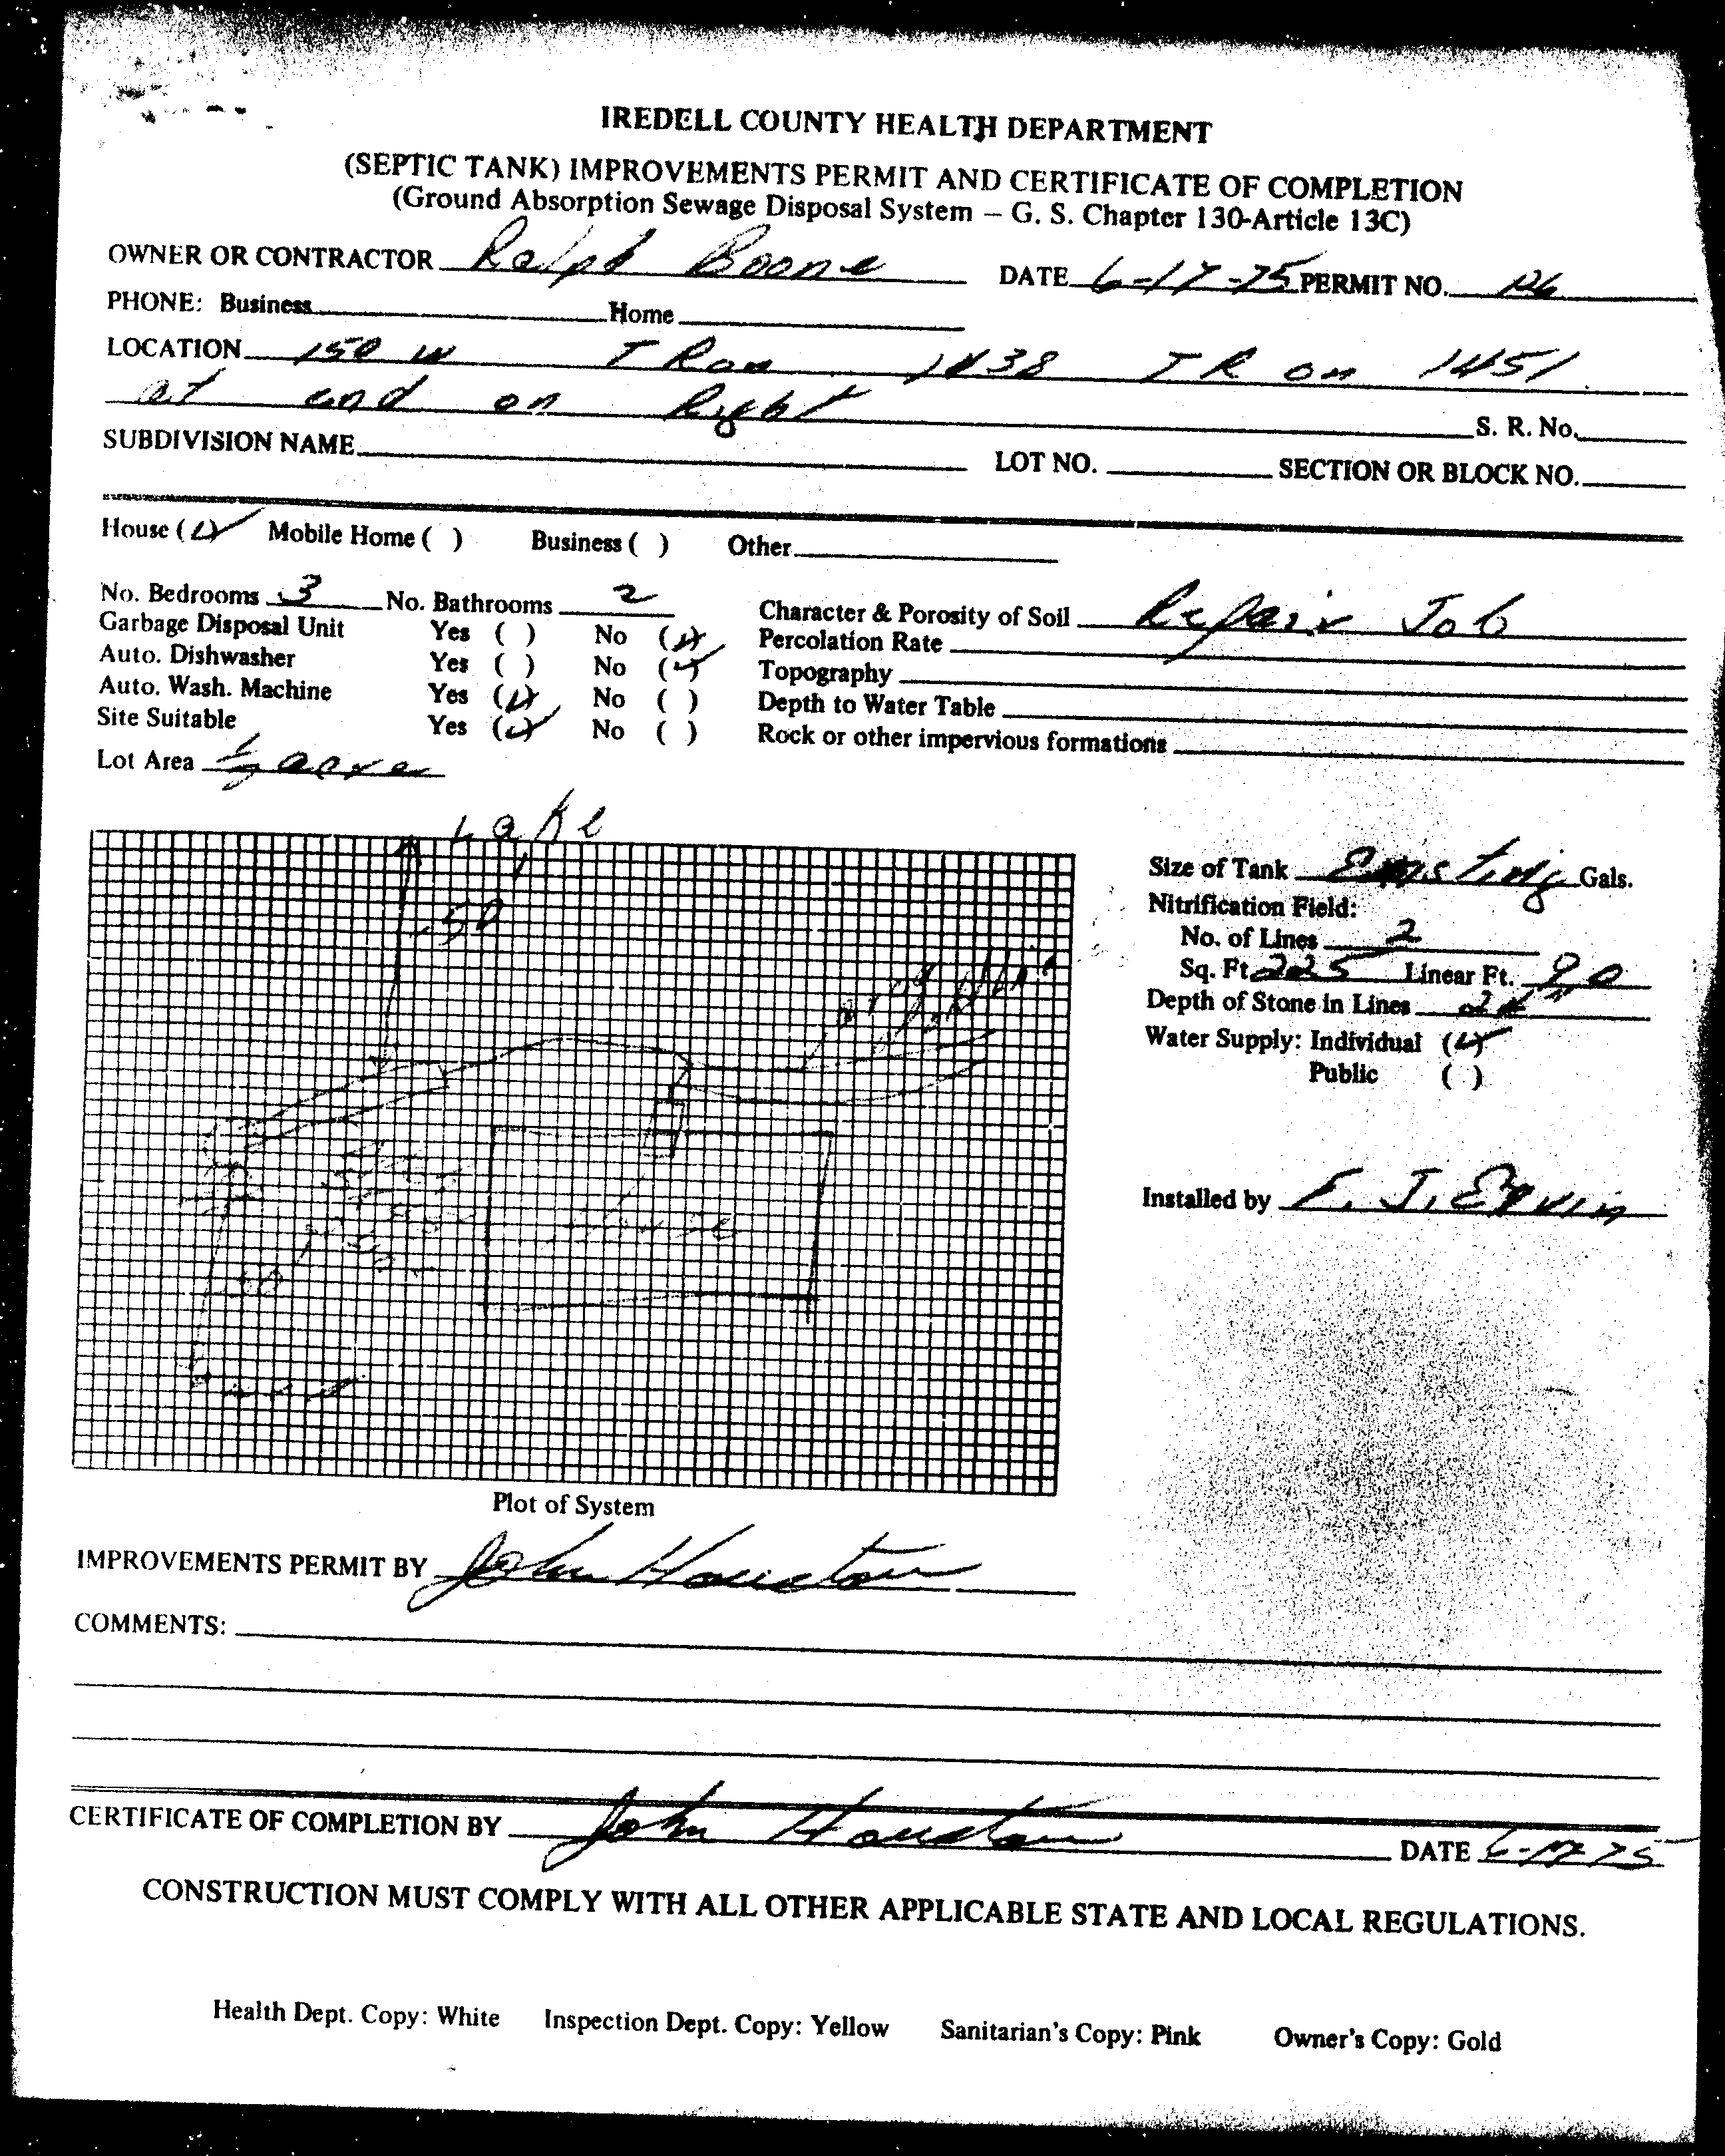 IREDELL COUNTY HEALTH DEPARTMENT
(SEPTIC TANK) IMPROVEMENTS PERMIT AND CERTIFICATE OF COMPLETION
(Ground Absorption Sewage Disposal System – G. S. Chapter 130-Article 13C)
OWNER OR CONTRACTOR Ralph Boone DATE 6-17-75 PERMIT NO.
PHONE: Business Home
LOCATION 150 W T R on 1438 T R on 1451
at end on Right S. R. No.
SUBDIVISION NAME LOT NO. SECTION OR BLOCK NO.
House (✓) Mobile Home ( ) Business ( ) Other
No. Bedrooms 3 No. Bathrooms 2 Character & Porosity of Soil Repair Job
Garbage Disposal Unit Yes ( ) No (✓) Percolation Rate
Auto. Dishwasher Yes ( ) No (✓) Topography
Auto. Wash. Machine Yes (✓) No ( ) Depth to Water Table
Site Suitable Yes (✓) No ( ) Rock or other impervious formations
Lot Area ½ acre
Lake
50'
House
Size of Tank Gals.
Nitrification Field:
No. of Lines 2
Sq. Ft. 225 Linear Ft. 90
Depth of Stone in Lines
Water Supply: Individual (✓)
Public ( )
Installed by J. Ervin
Plot of System
IMPROVEMENTS PERMIT BY John Houston
COMMENTS:
CERTIFICATE OF COMPLETION BY John Houston DATE 6-17-75
CONSTRUCTION MUST COMPLY WITH ALL OTHER APPLICABLE STATE AND LOCAL REGULATIONS.
Health Dept. Copy: White Inspection Dept. Copy: Yellow Sanitarian's Copy: Pink Owner's Copy: Gold